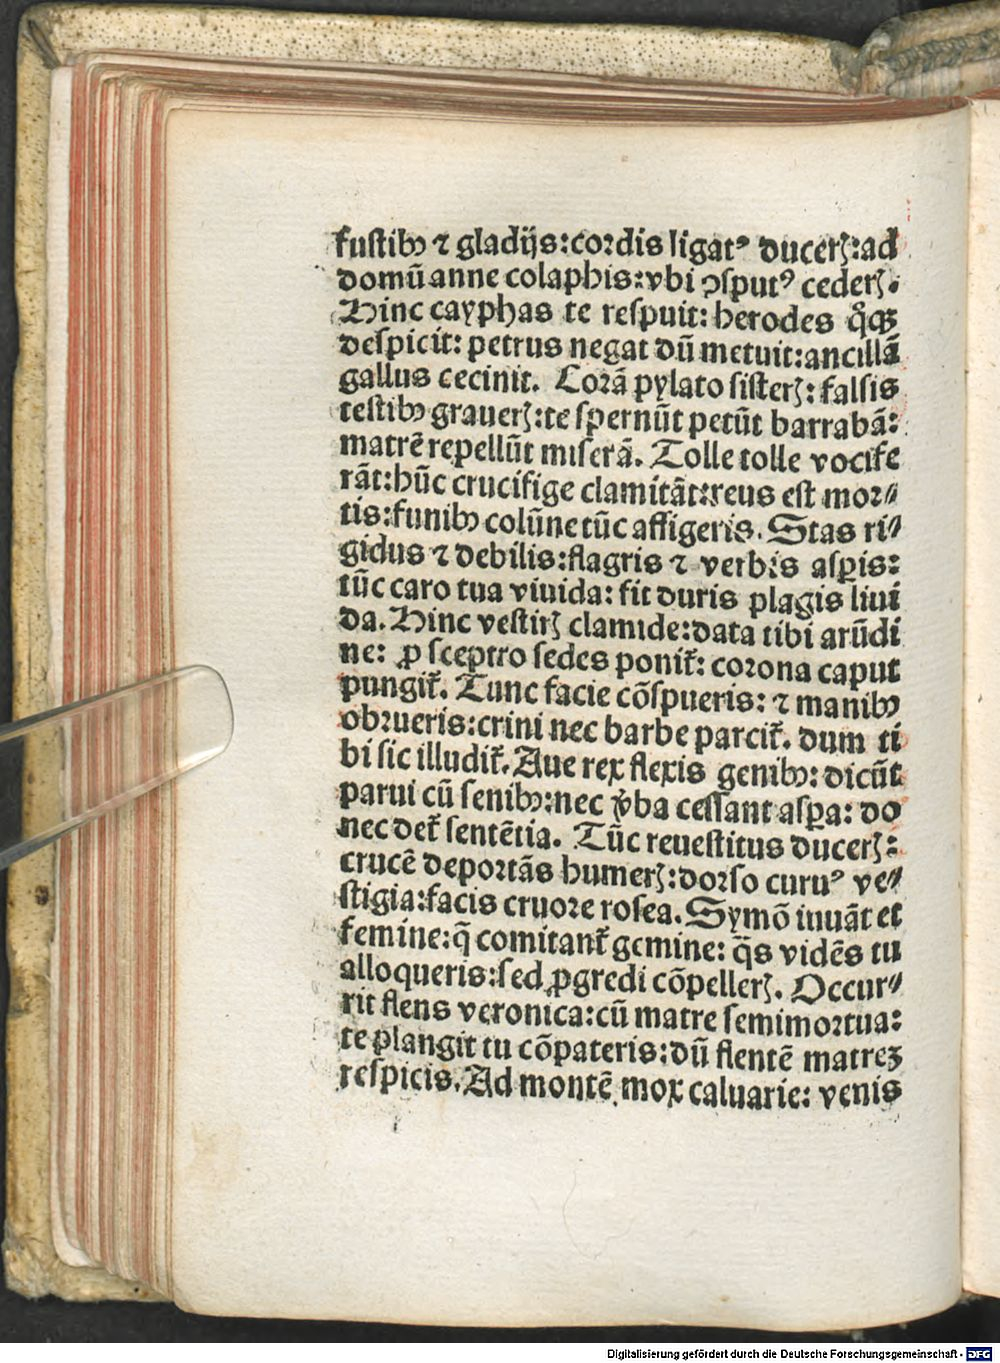 fustibꝰ ⁊ gladijs:cordis ligatꝰ ducerꝫ:ad
domū anne colaphis:vbi ꝯsputꝰ cederꝫ.
Hinc cayphas te respuit: herodes qͦꝗꝫ
despicit: petrus negat dū metuit:ancillā
gallus cecinit. Corā pylato sisterꝫ: falsis
testibꝰ grauerꝫ:te spernūt petūt barrabā:
matrē repellūt miserā. Tolle tolle vocife
rāt:hūc crucifige clamitāt:reus est mor⸗
tis:funibꝰ colūne tūc affigeris. Stas ri⸗
gidus ⁊ debilis:flagris ⁊ verbis asꝑis:
tūc caro tua viuida: fit duris plagis liui
da. Hinc vestirꝫ clamide:data tibi arūdi
ne: ꝓ sceptro sedes ponit̃: corona caput
pungit̃. Tunc facie cōspueris: ⁊ manibꝰ
obrueris:crini nec barbe parcit̃. dum ti
bi sic illudit̃. Aue rex flexis genibꝰ: dicūt
parui cū senibꝰ:nec v̓ba cessant asꝑa: do
nec det̃ sentētia. Tūc reuestitus ducerꝫ:
crucē deportās humerꝫ:dorso curuꝰ ve⸗
stigia:facis cruore rosea. Symō iuuāt et
femine:q̄ comitant̃ gemine: q̄s vidēs tu
alloqueris:sed ꝓgredi cōpellerꝫ. Occur⸗
rit flens veronica:cū matre semimortua:
te plangit tu cōpateris:dū flentē matreꝫ
respicis. Ad montē mox caluarie: venis
Digitalisierung gefördert durch die Deutsche Forschungsgemeinschaft - DFG